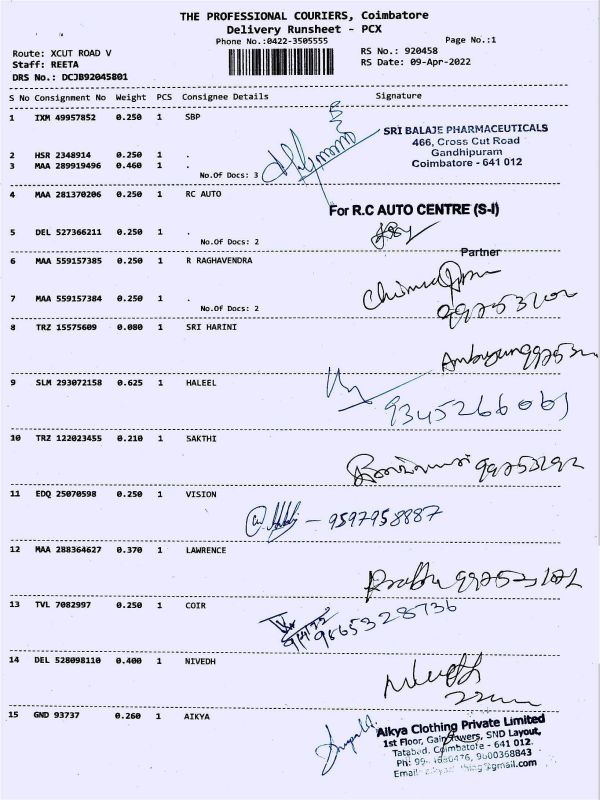 THE PROFESSIONAL COURIERS, Coimbatore
Delivery Runsheet - PCX
Phone No.:0422-3505555
Page No.:1
Route: XCUT ROAD V
RS No.: 920458
Staff: REETA
RS Date: 09-Apr-2022
DRS No.: DCJB92045801
S No Consignment No Weight PCS Consignee Details Signature
1 IXM 49957852 0.250 1 SBP
SRI BALAJE PHARMACEUTICALS
466, Cross Cut Road
Gandhipuram
Coimbatore - 641 012
2 HSR 2348914 0.250 1 .
3 MAA 289919496 0.460 1 .
No.Of Docs: 3
4 MAA 281370206 0.250 1 RC AUTO
For R.C AUTO CENTRE (S-I)
5 DEL 527366211 0.250 1 .
No.Of Docs: 2
Partner
6 MAA 559157385 0.250 1 R RAGHAVENDRA
7 MAA 559157384 0.250 1 .
No.Of Docs: 2
8 TRZ 15575609 0.080 1 SRI HARINI
9 SLM 293072158 0.625 1 HALEEL
9345266061
10 TRZ 122023455 0.210 1 SAKTHI
11 EDQ 25070598 0.250 1 VISION
- 9597958887
12 MAA 288364627 0.370 1 LAWRENCE
13 TVL 7082997 0.250 1 COIR
9865328736
14 DEL 528098110 0.400 1 NIVEDH
Nivedh
15 GND 93737 0.260 1 AIKYA
Aikya Clothing Private Limited
1st Floor, SND Layout,
Tatabad, Coimbatore - 641 012.
Ph: 9600368843
Email: